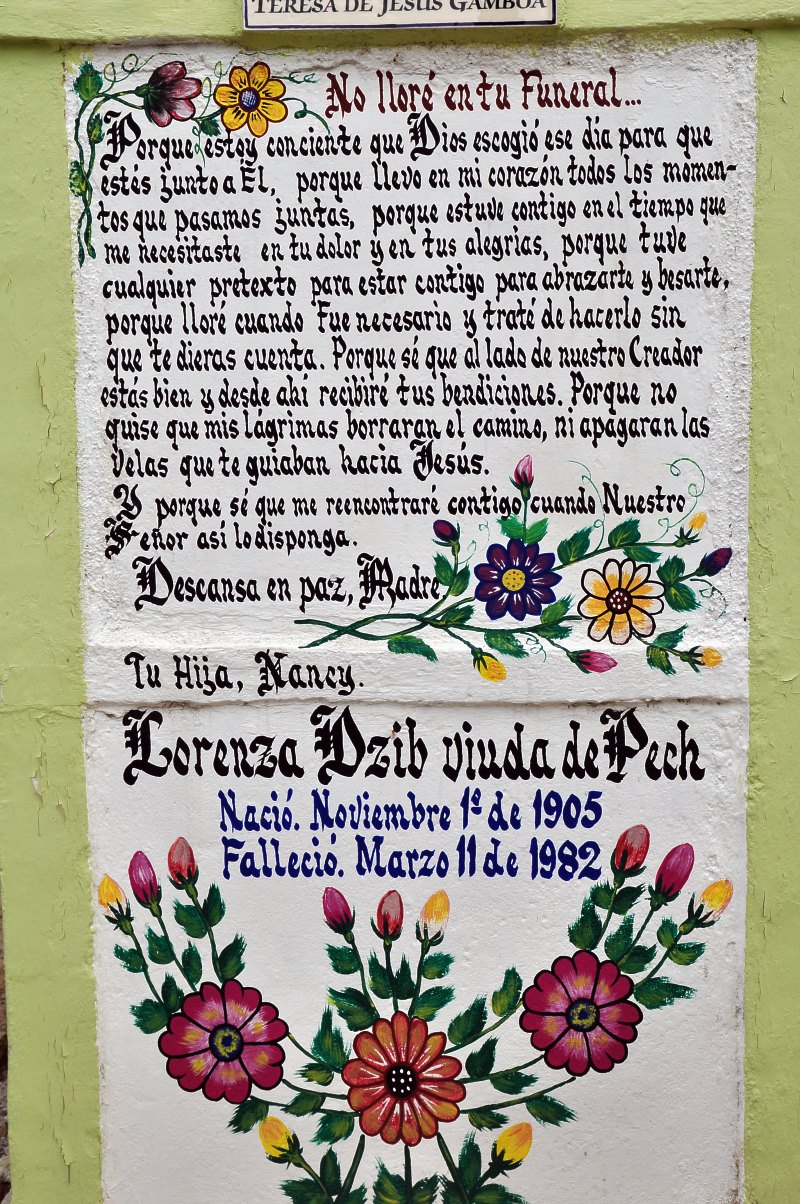 TERESA DE JESUS GAMBOA
No lloré en tu Funeral...
Porque estoy conciente que Dios escogió ese día para que
estés junto a Él, porque llevo en mi corazón todos los momen-
tos que pasamos juntas, porque estuve contigo en el tiempo que
me necesitaste en tu dolor y en tus alegrias, porque tuve
cualquier pretexto para estar contigo para abrazarte y besarte,
porque lloré cuando Fue necesario y traté de hacerlo sin
que te dieras cuenta. Porque sé que al lado de nuestro Creador
estás bien y desde ahí recibiré tus bendiciones. Porque no
quise que mis lágrimas borraran el camino, ni apagaran las
velas que te guiaban hacia Jesús.
Y porque sé que me reencontraré contigo cuando Nuestro
Señor así lo disponga.
Descansa en paz, Madre
Tu Hija, Nancy.
Lorenza Dzib viuda de Pech
Nació. Noviembre 1º de 1905
Falleció. Marzo 11 de 1982